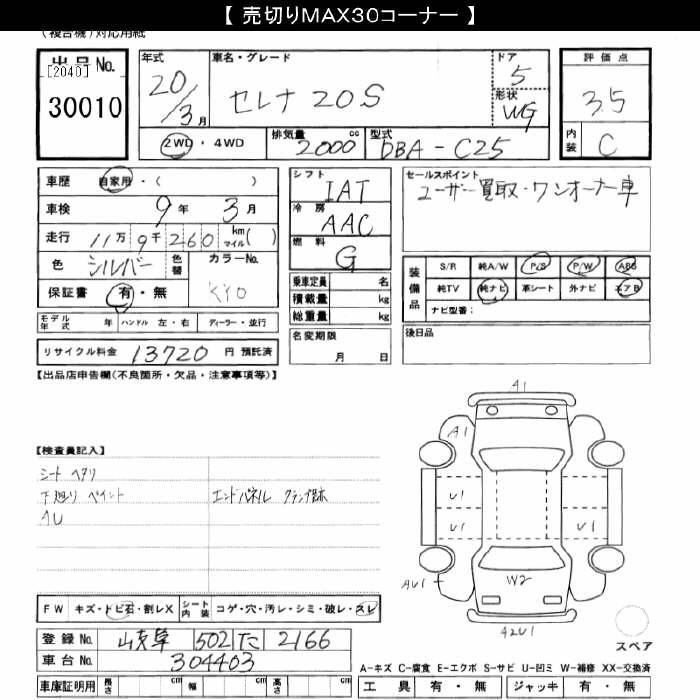 【 売切りMAX30コーナー 】
(複合機)対応用紙
出品No.
[2040]
30010
年式
20/3月
車名・グレード
セレナ 20S
ドア
5
形状
WG
評価点
3.5
内装
C
2WD・4WD
排気量
2000 cc
型式
DBA-C25
車歴 自家用・( )
車検 9年 3月
走行 11万 9千 260 km マイル( )
色 シルバー 色替
カラーNo.
KY0
保証書 有・無
モデル年式 年 ハンドル 左・右 ディーラー・並行
リサイクル料金 13720 円 預託済
シフト
IAT
冷房
AAC
燃料
G
乗車定員 名
積載量 kg
総重量 kg
名変期限
月 日
セールスポイント
ユーザー買取・ワンオーナー車
装備品
S/R 純A/W P/S P/W ABS
純TV 純ナビ 革シート 外ナビ エアB
ナビ型番:
後日品
【出品店申告欄(不良箇所・欠品・注意事項等)】
【検査員記入】
シート ヘタリ
下廻り ペイント エンドパネル クランプ跡
AU
A1
A1
U1
U1
U1
AU1
W2
42U1
スペア
FW キズ・トビ石・割レX シート内装 コゲ・穴・汚レ・シミ・破レ・スレ
登録No. 岐阜 502 た 2166
車台No. 304403
車庫証明用 長さ cm 幅 cm 高さ cm
A-キズ C-腐食 E-エクボ S-サビ U-凹ミ W-補修 XX-交換済
工具 有・無 ジャッキ 有・無